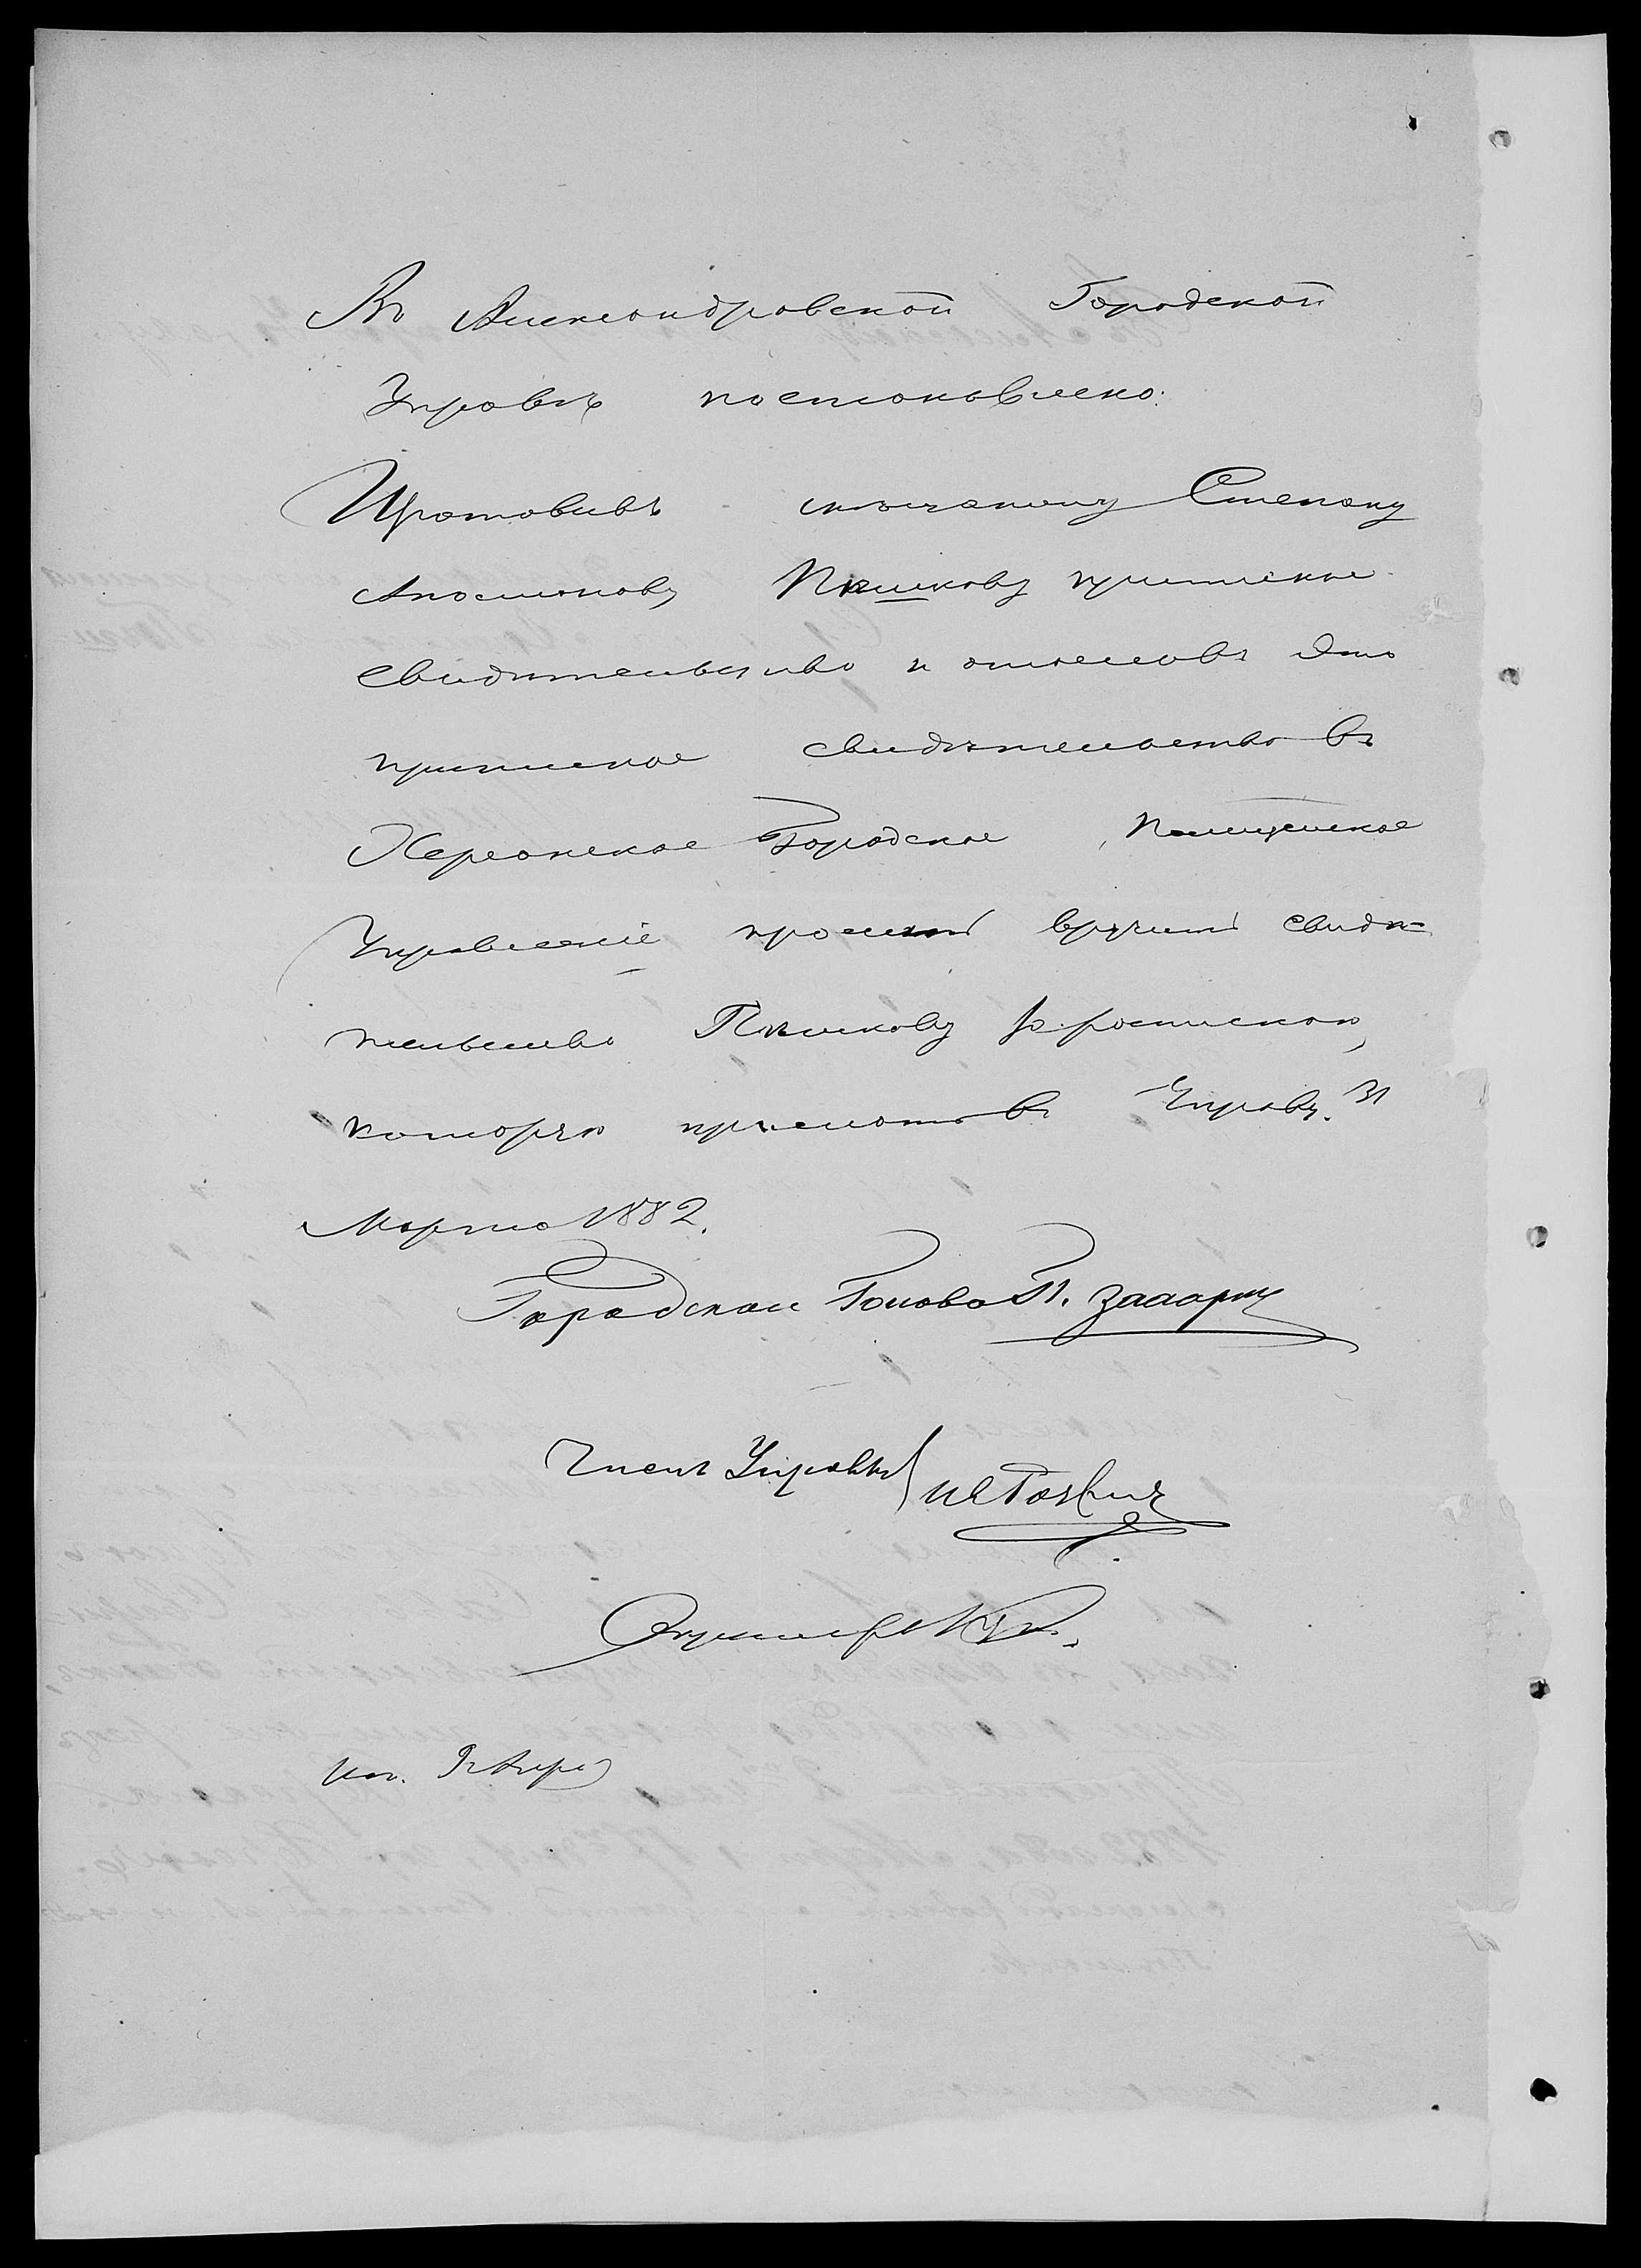 Въ Александровской Городской
Управѣ постановлено:
Изготовивъ мѣщанину Степану
Пѣшкову приписное
свидѣтельство и отославъ это
приписное свидѣтельство въ
Херсонское Городское Полицейское
Управленіе просить вручить свидѣ=
тельство Пѣшкову подъ росписку,
которую прислать въ Управу. 31
Марта 1882.
Городской Голова
Членъ Управы